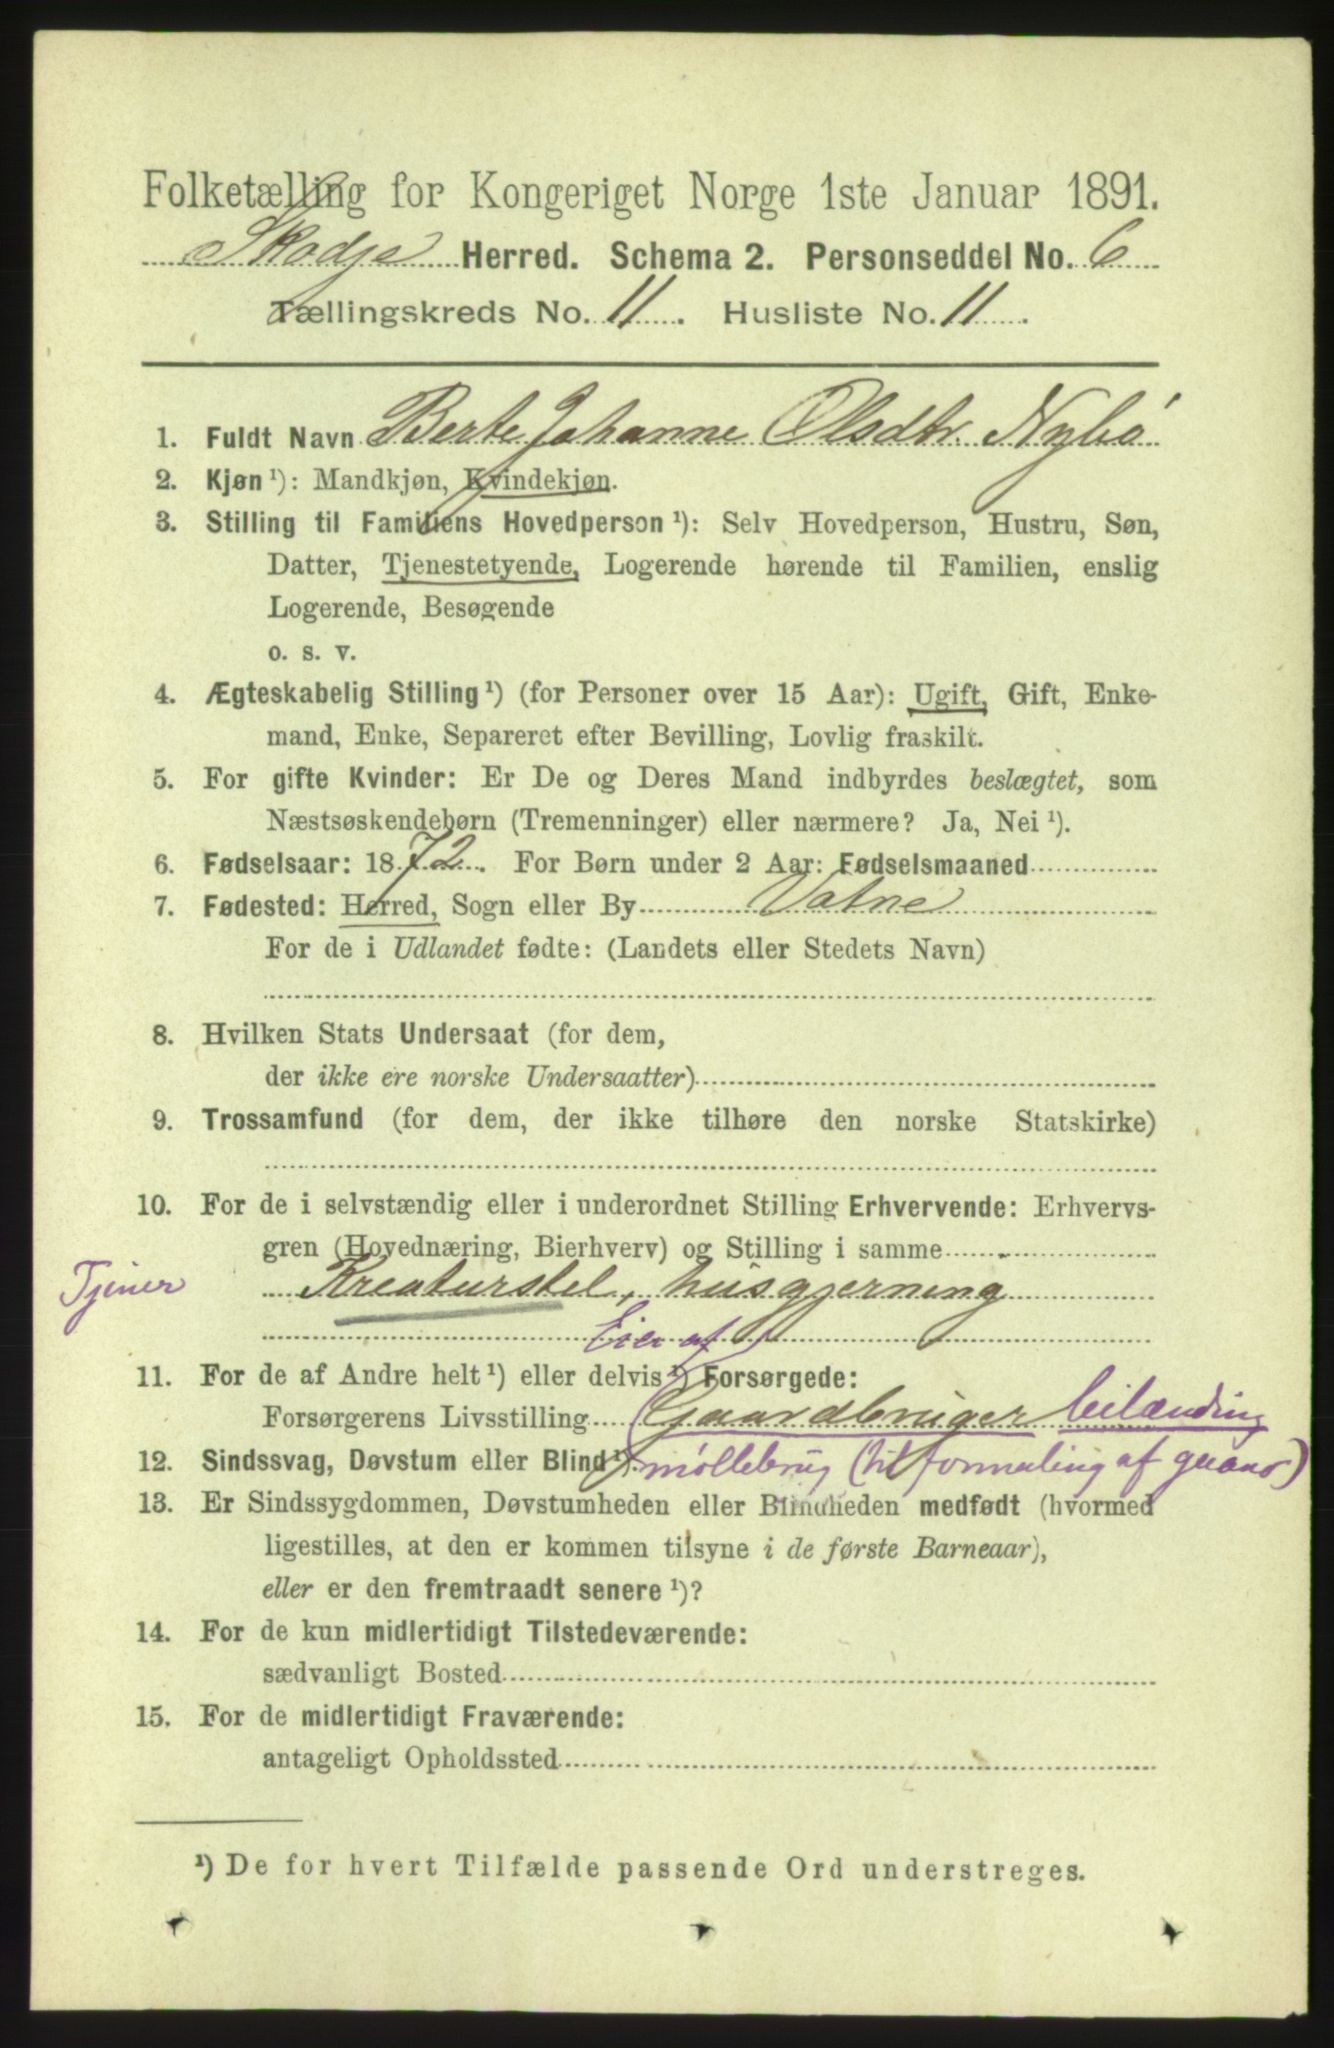 Folketælling for Kongeriget Norge 1ste Januar 1891.
Skodje Herred. Schema 2. Personseddel No. 6
Tællingskreds No. 11. Husliste No. 11.
1. Fuldt Navn Berte Johanne Olsdtr. Nybö
2. Kjøn ¹): Mandkjøn, Kvindekjøn.
3. Stilling til Familiens Hovedperson ¹): Selv Hovedperson, Hustru, Søn,
Datter, Tjenestetyende, Logerende hørende til Familien, enslig
Logerende, Besøgende
o. s. v.
4. Ægteskabelig Stilling ¹) (for Personer over 15 Aar): Ugift, Gift, Enke-
mand, Enke, Separeret efter Bevilling, Lovlig fraskilt.
5. For gifte Kvinder: Er De og Deres Mand indbyrdes beslægtet, som
Næstsøskendebørn (Tremenninger) eller nærmere? Ja, Nei ¹).
6. Fødselsaar: 1872. For Børn under 2 Aar: Fødselsmaaned
7. Fødested: Herred, Sogn eller By Vatne
For de i Udlandet fødte: (Landets eller Stedets Navn)
8. Hvilken Stats Undersaat (for dem,
der ikke ere norske Undersaatter)
9. Trossamfund (for dem, der ikke tilhøre den norske Statskirke)
10. For de i selvstændig eller i underordnet Stilling Erhvervende: Erhvervs-
gren (Hovednæring, Bierhverv) og Stilling i samme
Tjener Kreaturstel, husgjerning
Eier af
11. For de af Andre helt ¹) eller delvis ¹) Forsørgede:
Forsørgerens Livsstilling Gaardbruger leilænding
12. Sindssvag, Døvstum eller Blind ¹). møllebrug (til formaling af guano)
13. Er Sindssygdommen, Døvstumheden eller Blindheden medfødt (hvormed
ligestilles, at den er kommen tilsyne i de første Barneaar),
eller er den fremtraadt senere ¹)?
14. For de kun midlertidigt Tilstedeværende:
sædvanligt Bosted
15. For de midlertidigt Fraværende:
antageligt Opholdssted
¹) De for hvert Tilfælde passende Ord understreges.